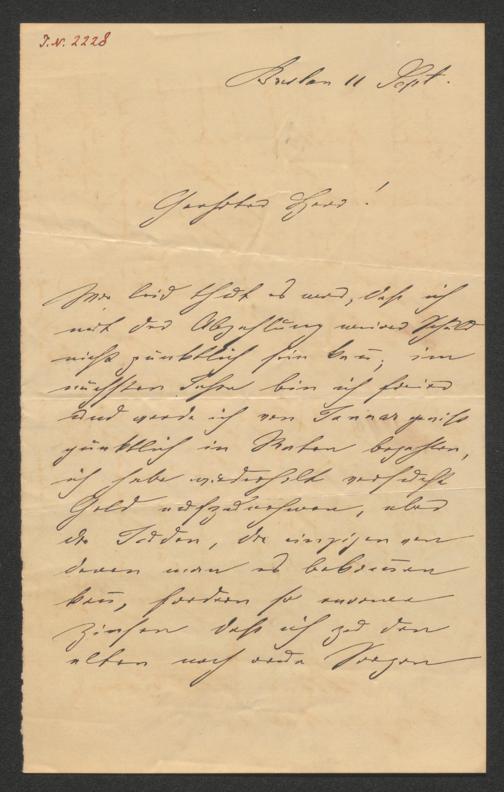 J.N. 2228
Breslau 11 Sept.
Geehrter Herr!
Wie leid thut es mir, daß ich
mit der Abzahlung meiner Schuld
nicht pünktlich sein kann; im
nächsten Jahre bin ich freier
und werde ich von Januar gewiß
pünktlich in Raten bezahlen,
ich habe wiederholt versucht
Geld aufzunehmen, aber
die Juden, die einzigen von
denen man es bekommen
kann, fordern so enorme
Zinsen daß ich zu den
alten noch neue Sorgen